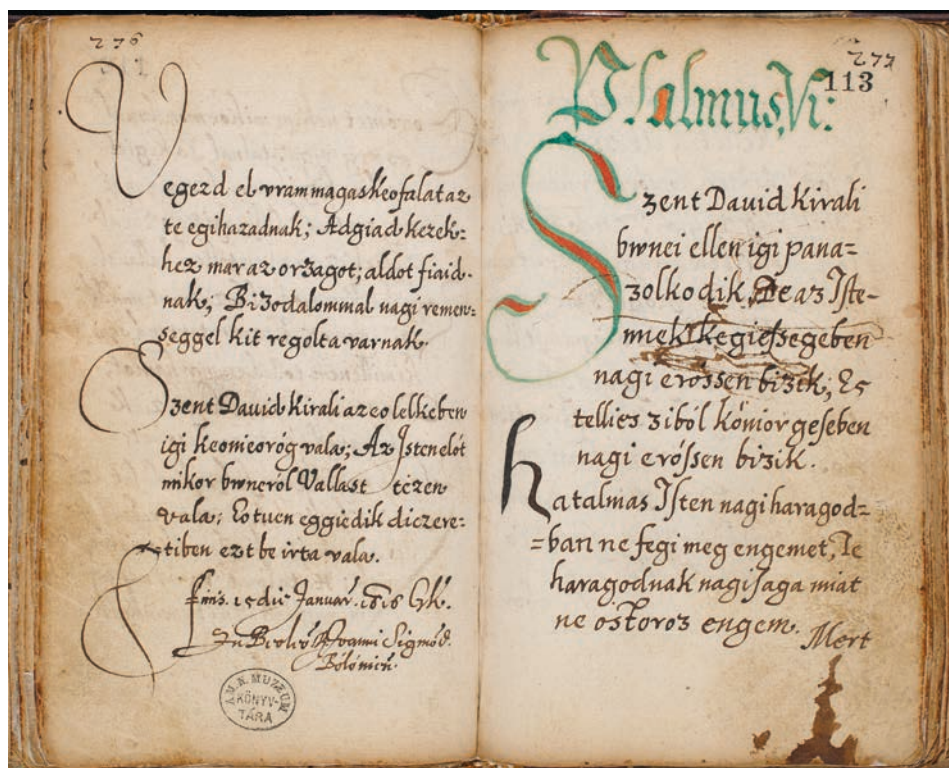 276
Vegezd el vram magas keofalat az
te egihazadnak; Adgiad kezek:
hez mar az orzagot; aldot fiaid.
nak; Bizodalommal nagi remen:
seggel kit regolta varnak.
Szent Dauid Kirali az eo lelkeben
igi keonieoróg vala; Az Istenelót
mikor bwneról Vallast tézen
vala; Eotuen eggiedik diczere:
tiben ezt be irta vala.
Finis. 15 die Januar. 1616
Sigmód.
A. M. N. MUZEUM
KÖNYV-
TÁRA
277
113
Psalmus, Vi:
Szent Dauid Kirali
bwnei ellen igi pana=
zolkodik, De az Iste-
nnek kegiessegeben
nagi erossen bizik; Es
tellies ziból kóniorgeseben
nagi eróssen bizik.
hatalmas Isten nagi haragod=
=ban ne fegi meg engemet, Te
haragodnak nagisaga miat
ne ostoroz engem.
Mert